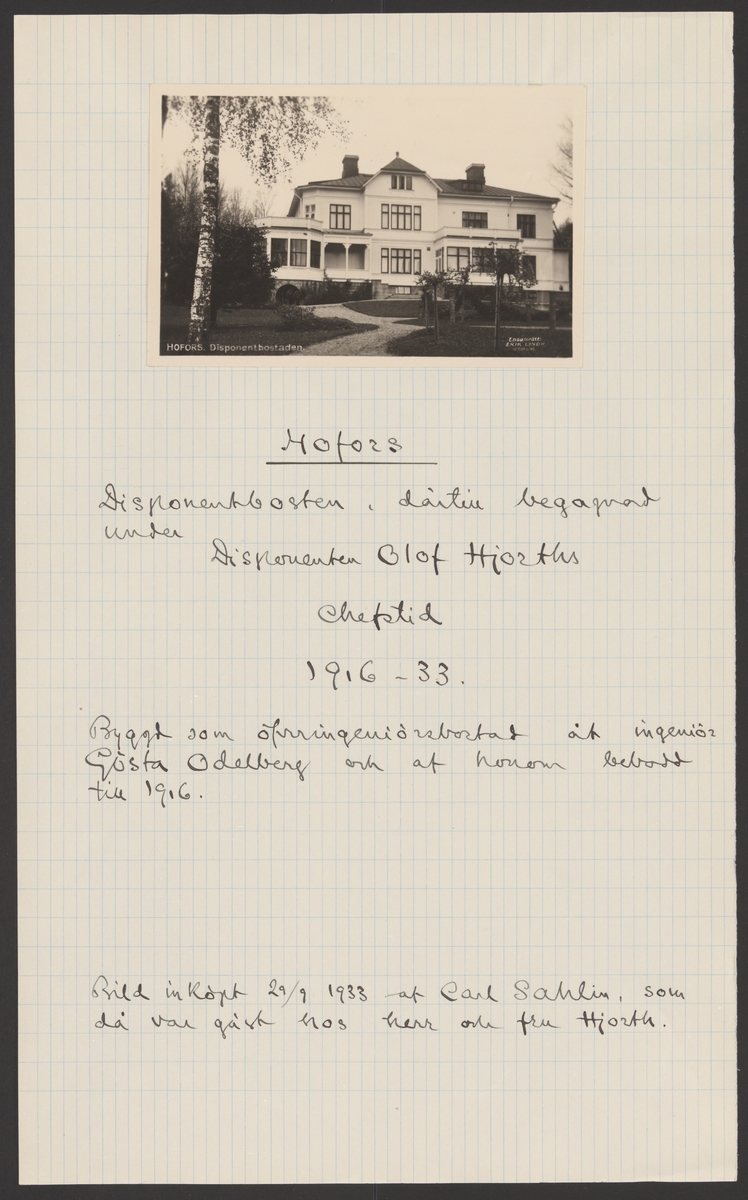 HOFORS. Disponentbostaden.
Ensamrätt:
ERIK
Hofors
Disponentbosten, därtill begagnad
under
Disponenten Olof Hjorths
Chefstid
1916-33.
Byggd som öfveringeniörsbostad åt ingeniör
Gösta Odelberg och af honom bebodd
till 1916.
Bild inköpt 29/9 1933 af Carl Sahlin, som
då var gäst hos herr och fru Hjorth.